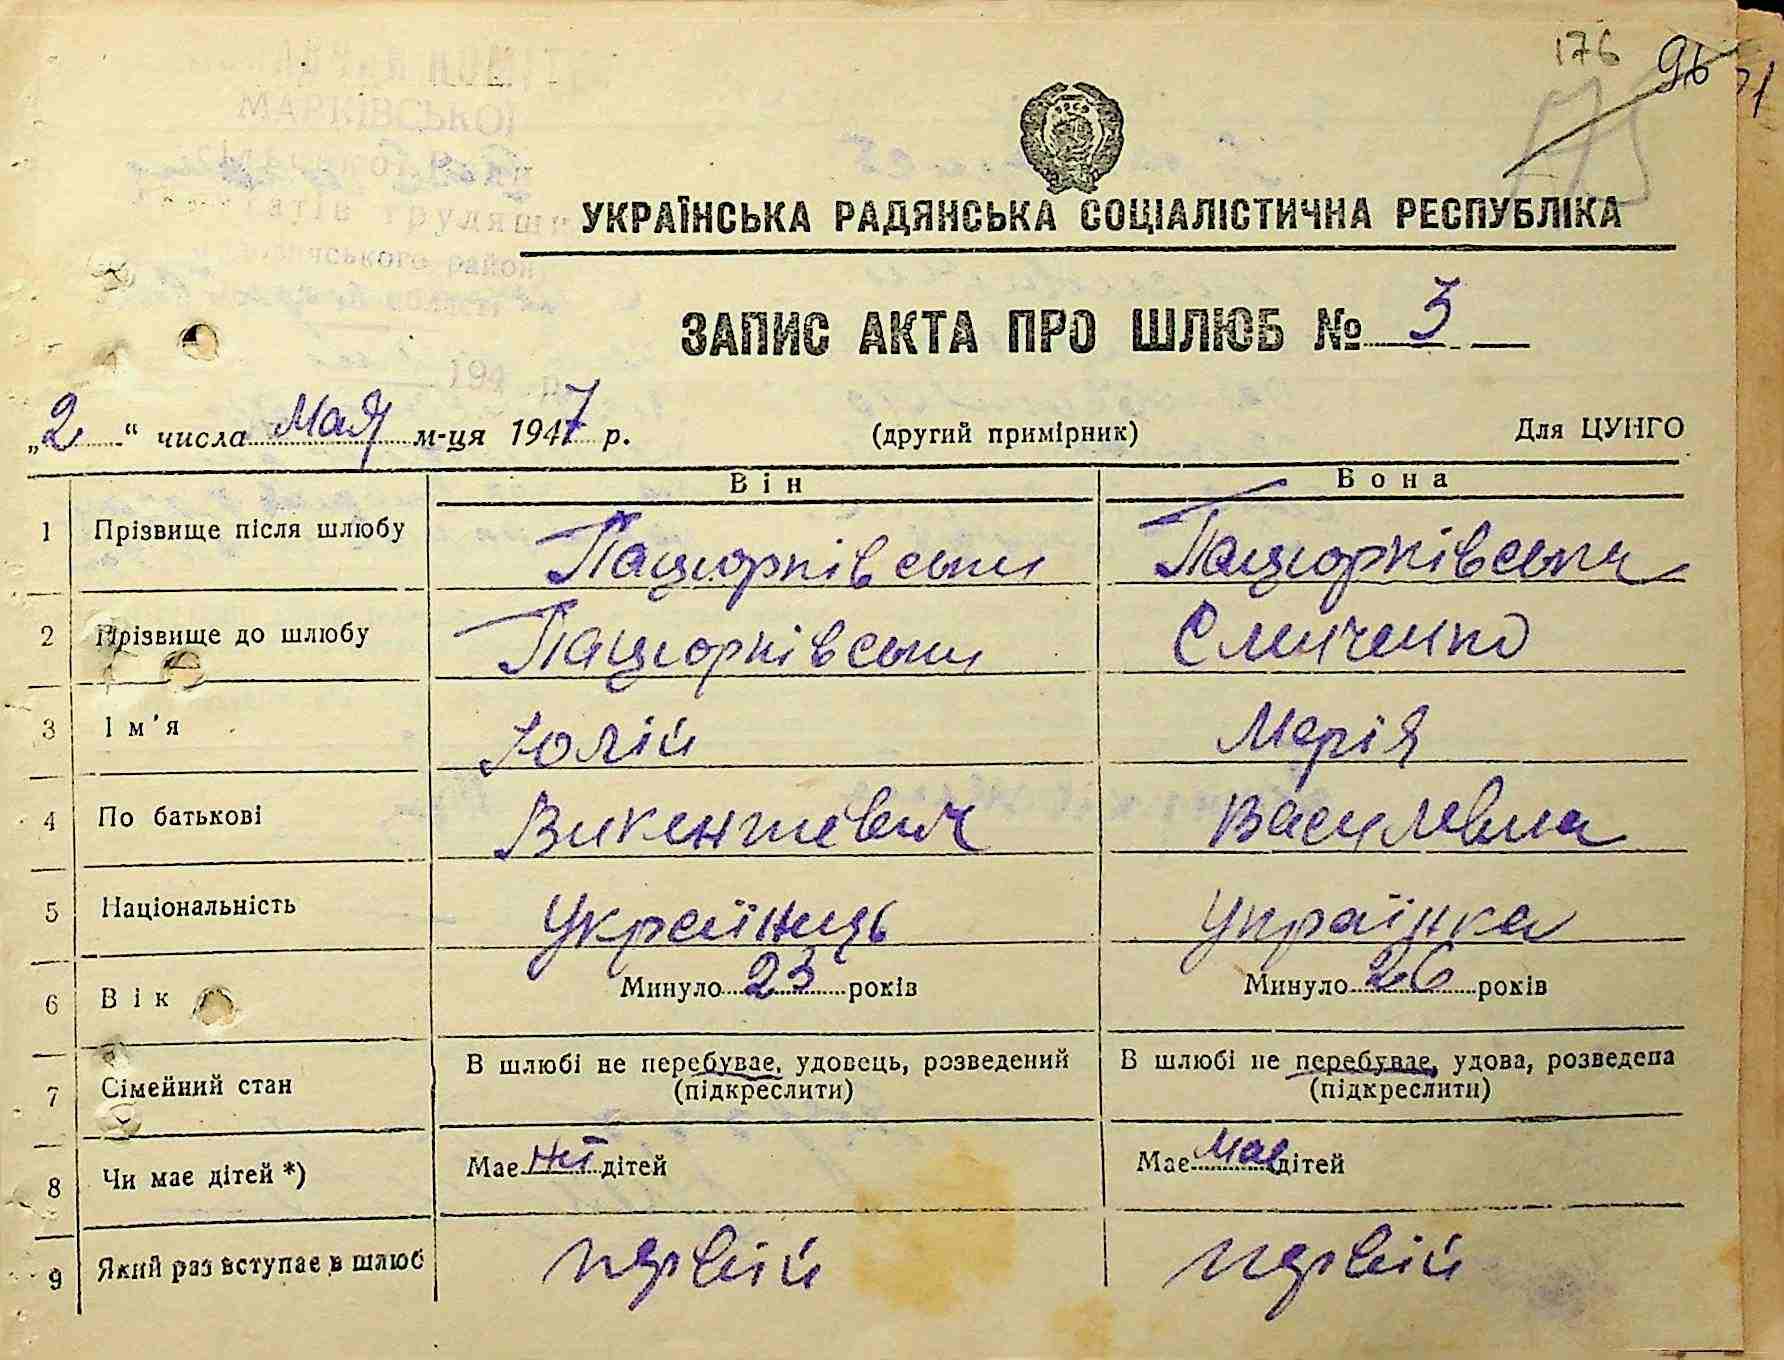 176 96
175
УКРАЇНСЬКА РАДЯНСЬКА СОЦІАЛІСТИЧНА РЕСПУБЛІКА
ЗАПИС АКТА ПРО ШЛЮБ № 3
„2“ числа мая м-ця 1947 р. (другий примірник) Для ЦУНГО
Він Вона
1 Прізвище після шлюбу Пацюрківськи Пацюрківська
2 Прізвище до шлюбу Пацюрківськи
3 Ім'я Юлій Марія
4 По батькові Викентевич Василевна
5 Національність Українець Українка
6 Вік Минуло 23 років Минуло 26 років
7 Сімейний стан В шлюбі не перебуває, удовець, розведений (підкреслити) В шлюбі не перебуває, удова, розведена (підкреслити)
8 Чи має дітей *) Має ні дітей Має має дітей
9 Який раз вступає в шлюб первій первій
МАРКІВСЬКОЇ